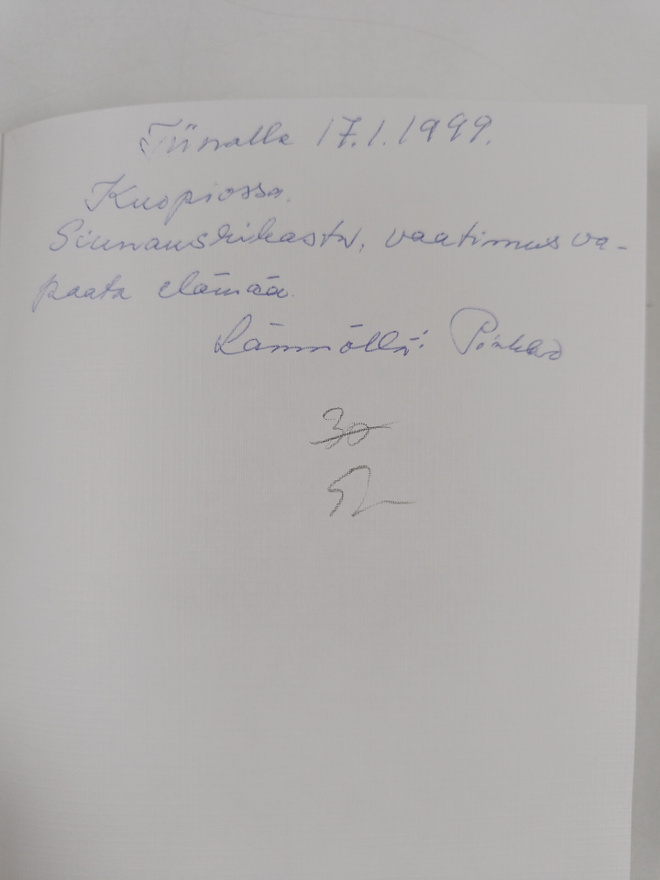 Tiinalle 17.1.1999.
Kuopiossa.
Siunausrikasta, vaatimusva-
paata elämää.
Lämmöllä:
30